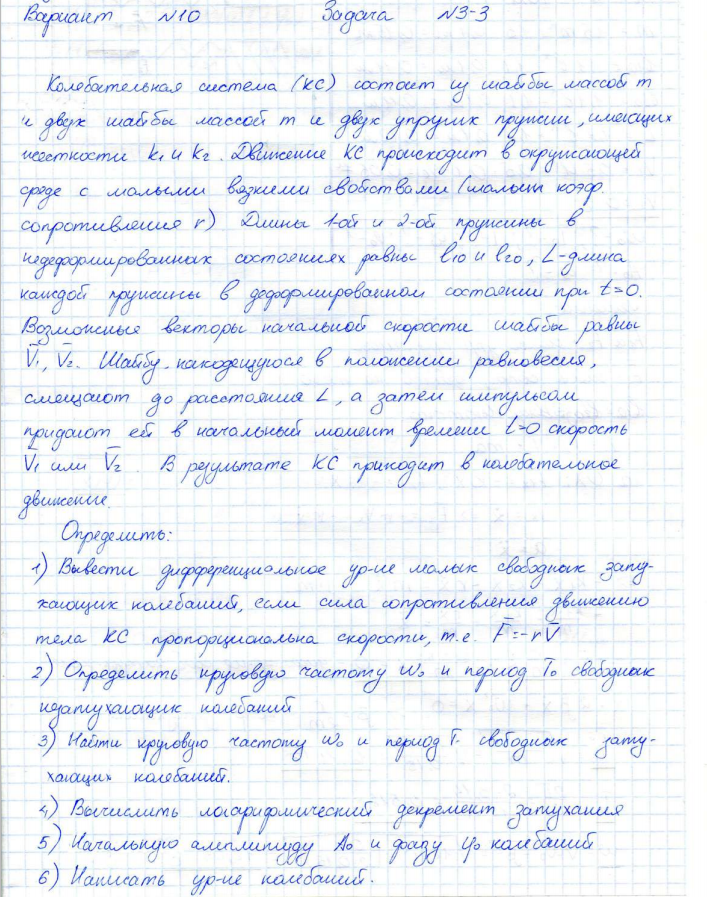 Вариант №10 Задача №3-3
Колебательная система (КС) состоит из шайбы массой m
и двух шайбы массой m и двух упругих пружин, имеющих
жесткости k1 и k2. Движение КС происходит в окружающей
среде с малыми вязкими свойствами (малым коэф.
сопротивления r) Длины 1-ой и 2-ой пружины в
недеформированных состояниях равны l10 и l20, L-длина
каждой пружины в деформированном состоянии при t=0.
Возможные векторы начальной скорости шайбы равны
V̄1, V̄2. Шайбу, находящуюся в положении равновесия,
смещают до расстояния L, а затем импульсом
придают ей в начальный момент времени t=0 скорость
V̄1 или V̄2. В результате КС приходит в колебательное
движение.
Определить:
1) Вывести дифференциальное ур-ие малых свободных зату-
хающих колебаний, если сила сопротивления движению
тела КС пропорциональна скорости, т.е. F̄=-rV̄
2) Определить круговую частоту ω0 и период T0 свободных
незатухающих колебаний
3) Найти круговую частоту ω0 и период T свободных зату-
хающих колебаний.
4) Вычислить логарифмический декремент затухания
5) Начальную амплитуду A0 и фазу φ0 колебаний
6) Написать ур-ие колебаний.